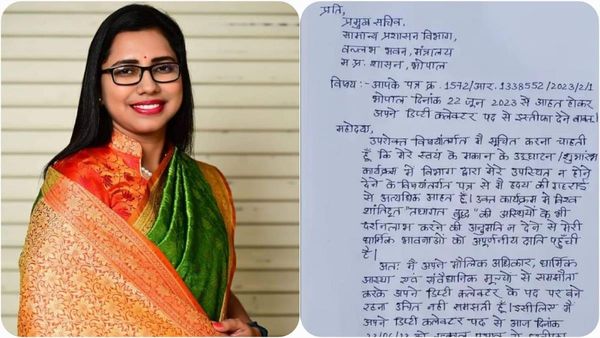 प्रति,
प्रमुख सचिव,
सामान्य प्रशासन विभाग,
वल्लभ भवन, मंत्रालय
म.प्र. शासन, भोपाल
विषय:- आपके पत्र क्र. 1572/आर. 1338552/2023/2/1
भोपाल दिनांक 22 जून 2023 से आहत होकर
अपने डिप्टी कलेक्टर पद से इस्तीफा देने बाबत्।
महोदया,
उपरोक्त विषयांतर्गत मैं सूचित करना चाहती
हूँ कि मेरे स्वयं के मकान के उद्घाटन/शुभारंभ
कार्यक्रम में विभाग द्वारा मेरे उपस्थित न होने
देने के विषयांतर्गत पत्र से मैं हृदय की गहराई
से अत्यधिक आहत हूँ। उक्त कार्यक्रम में विश्व
शांतिदूत "तथागत बुद्ध" की अस्थियों के भी
दर्शनलाभ करने की अनुमति न देने से मेरी
धार्मिक भावनाओं को अपूर्णनीय क्षति पहुँची
है।
अतः मैं अपने मौलिक अधिकार, धार्मिक
आस्था एवं संवैधानिक मूल्यों से समझौता
करके अपने डिप्टी कलेक्टर के पद पर बने
रहना उचित नहीं समझती हूँ। इसीलिए मैं
अपने डिप्टी कलेक्टर पद से आज दिनांक